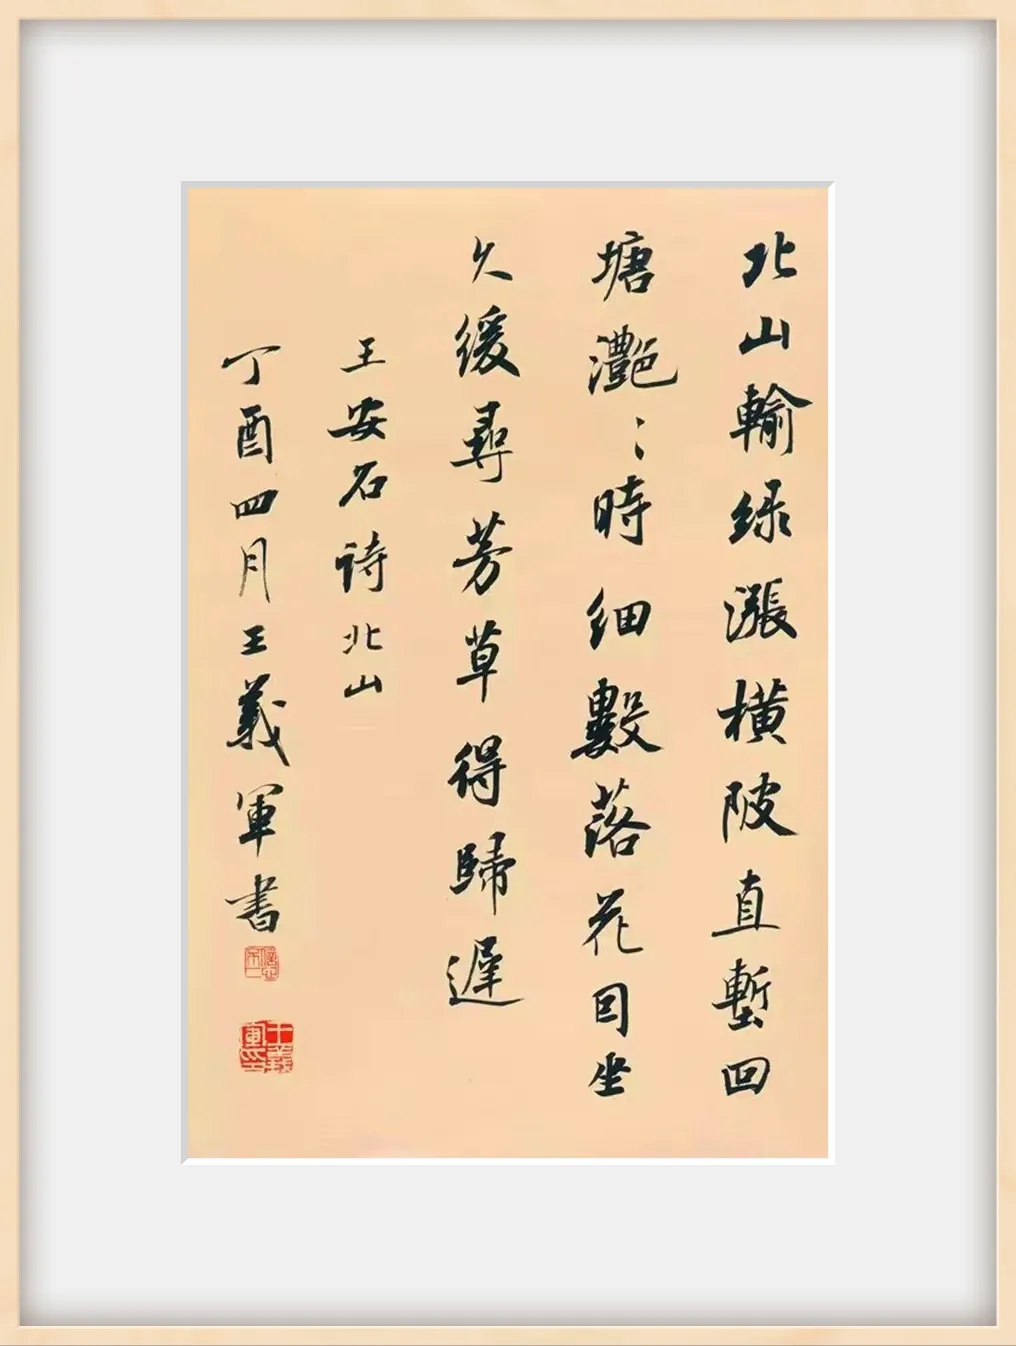 北山輸绿漲橫陂直塹回
塘灔〻時细數落花因坐
久緩尋芳草得歸遲
王安石诗北山
丁酉四月王義軍書
王義軍印